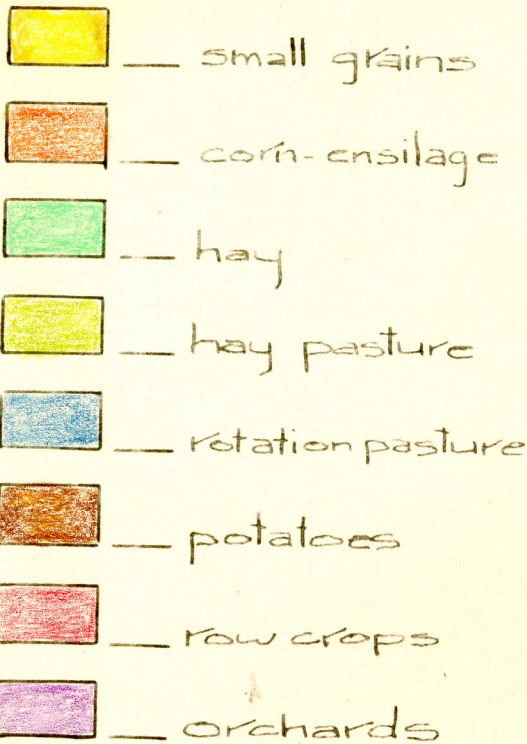 small grains
corn-ensilage
hay
hay pasture
rotation pasture
potatoes
row crops
orchards